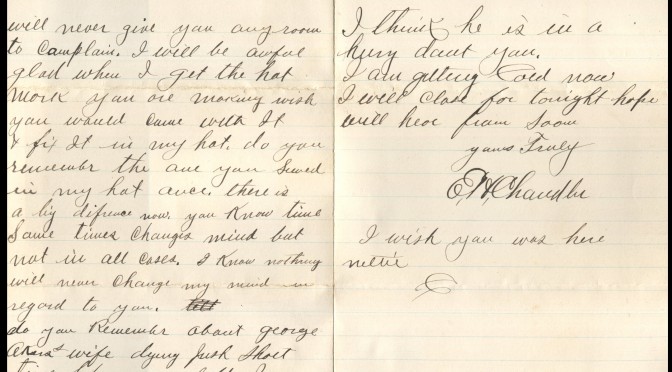 will never give you any room
to complain. I will be awful
glad when I get the hat
mark you are making wish
you would came with It
& fix It in my hat. do you
remember the one you Sewed
in my hat once. there is
a big difrence now. you Know time
Some times Changes mind but
not in all cases. I Know nothing
will never Change my mind in
regard to you.
do you Remember about george
wife dying Just Short
I think he is in a
hury dont you.
I am getting Cold now
I will Close for tonight hope
will hear from Soon
yours Truly
Chandler
I wish you was here
nettie